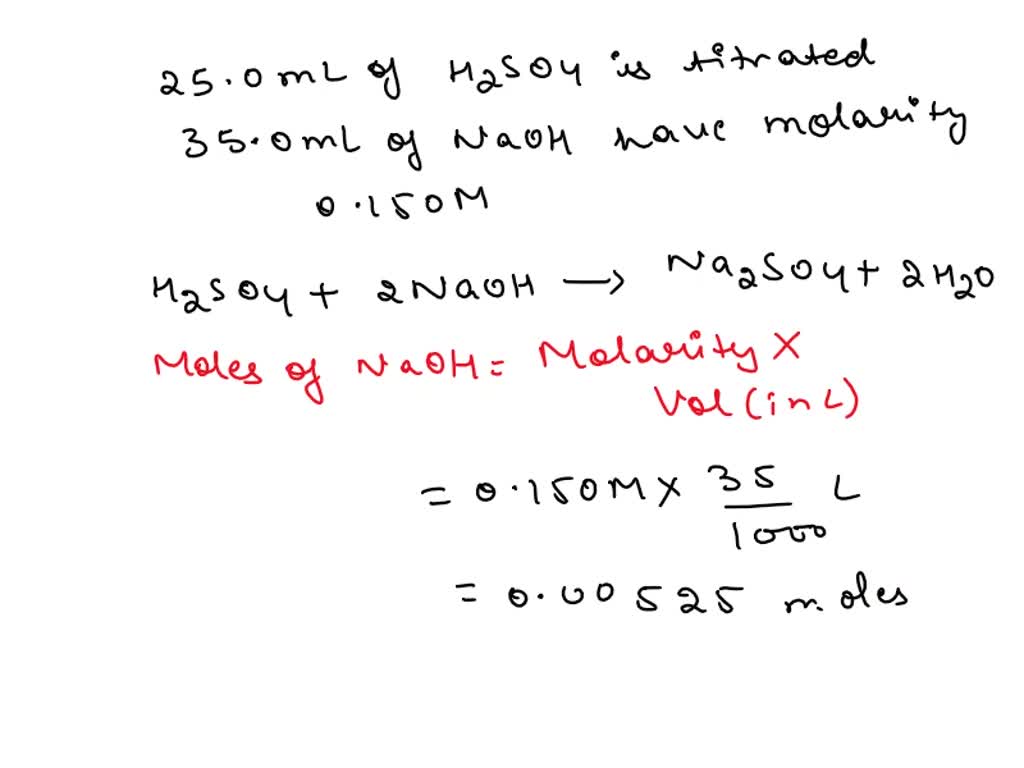 25.0mL of H2SO4 is titrated
35.0mL of NaOH have molarity
0.150M
H2SO4 + 2NaOH → Na2SO4 + 2H2O
Moles of NaOH = Molarity X
Vol (in L)
= 0.150M X 35/1000 L
= 0.00525 moles